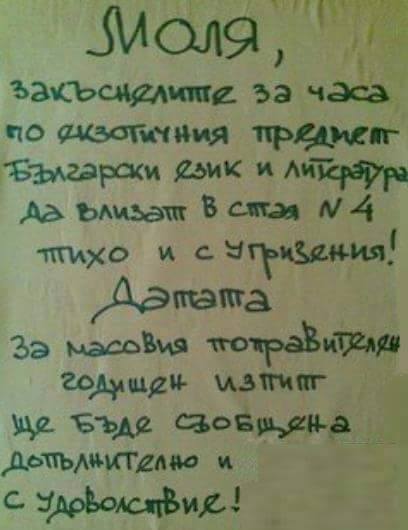 Моля,
закъснелите за часа
по екзотичния предмет
Български език и литература
да влизат в стая N 4
тихо и с угризения!
Датата
за масовия поправителен
годишен изпит
ще бъде съобщена
допълнително и
с удоволствие!